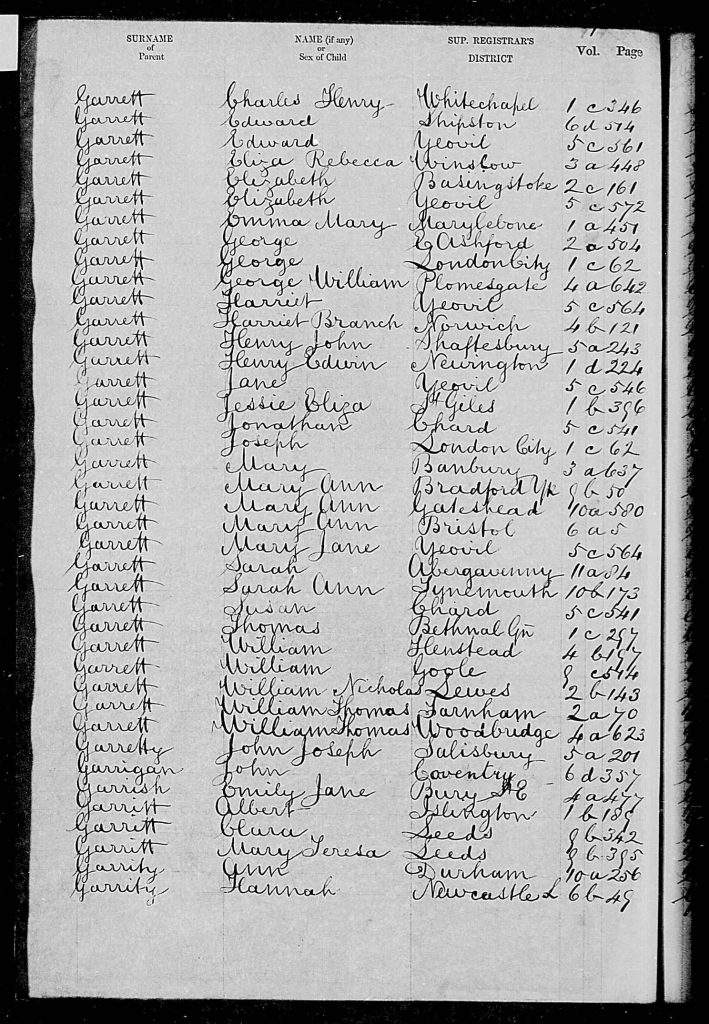 SURNAME of Parent NAME (if any) or Sex of Child SUP. REGISTRAR'S DISTRICT Vol. Page
Garrett Charles Henry Whitechapel 1 c 346
Garrett Edward Shipston 6 d 514
Garrett Edward Yeovil 5 c 561
Garrett Eliza Rebecca Winslow 3 a 448
Garrett Elizabeth Basingstoke 2 c 161
Garrett Elizabeth Yeovil 5 c 572
Garrett Emma Mary Marylebone 1 a 451
Garrett George E Ashford 2 a 504
Garrett George London City 1 c 62
Garrett George William Plomesgate 4 a 642
Garrett Harriet Yeovil 5 c 564
Garrett Harriet Branch Norwich 4 b 121
Garrett Henry John Shaftesbury 5 a 243
Garrett Henry Edwin Newington 1 d 224
Garrett Jane Yeovil 5 c 546
Garrett Jessie Eliza St Giles 1 b 396
Garrett Jonathan Chard 5 c 541
Garrett Joseph London City 1 c 62
Garrett Mary Banbury 3 a 637
Garrett Mary Ann Bradford Yk 9 b 50
Garrett Mary Ann Gateshead 10 a 580
Garrett Mary Ann Bristol 6 a 5
Garrett Mary Jane Yeovil 5 c 564
Garrett Sarah Abergavenny 11 a 84
Garrett Sarah Ann Tynemouth 10 b 173
Garrett Susan Chard 5 c 541
Garrett Thomas Bethnal Gn 1 c 297
Garrett William Henstead 4 b
Garrett William Goole 9 c 544
Garrett William Nicholas Lewes 2 b 143
Garrett William Thomas Farnham 2 a 70
Garrett William Thomas Woodbridge 4 a 623
Garretty John Joseph Salisbury 5 a 201
Garrigan John Coventry 6 d 357
Garrish Emily Jane Bury St E 4 a 477
Garritt Albert Islington 1 b 189
Garritt Clara Leeds 9 b 342
Garritt Mary Teresa Leeds 9 b 395
Garrity Ann Durham 10 a 256
Garrity Hannah Newcastle L 6 b 49